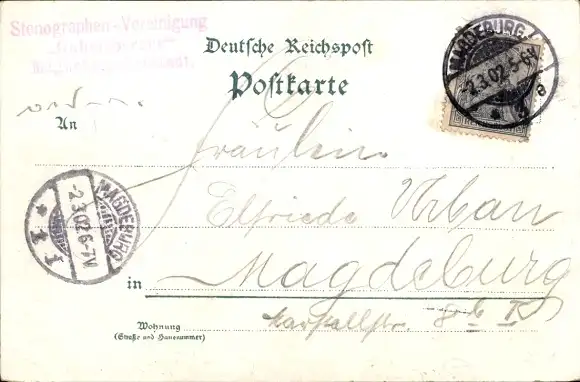 Stenographen-Vereinigung
Deutsche Reichspost
Postkarte
An
Fräulein
Elfriede Urban
in Magdeburg
Wohnung
(Straße und Hausnummer)
MAGDEBURG
-2.3.02.5-6N
MAGDEBURG
-2.3.02.6-7V